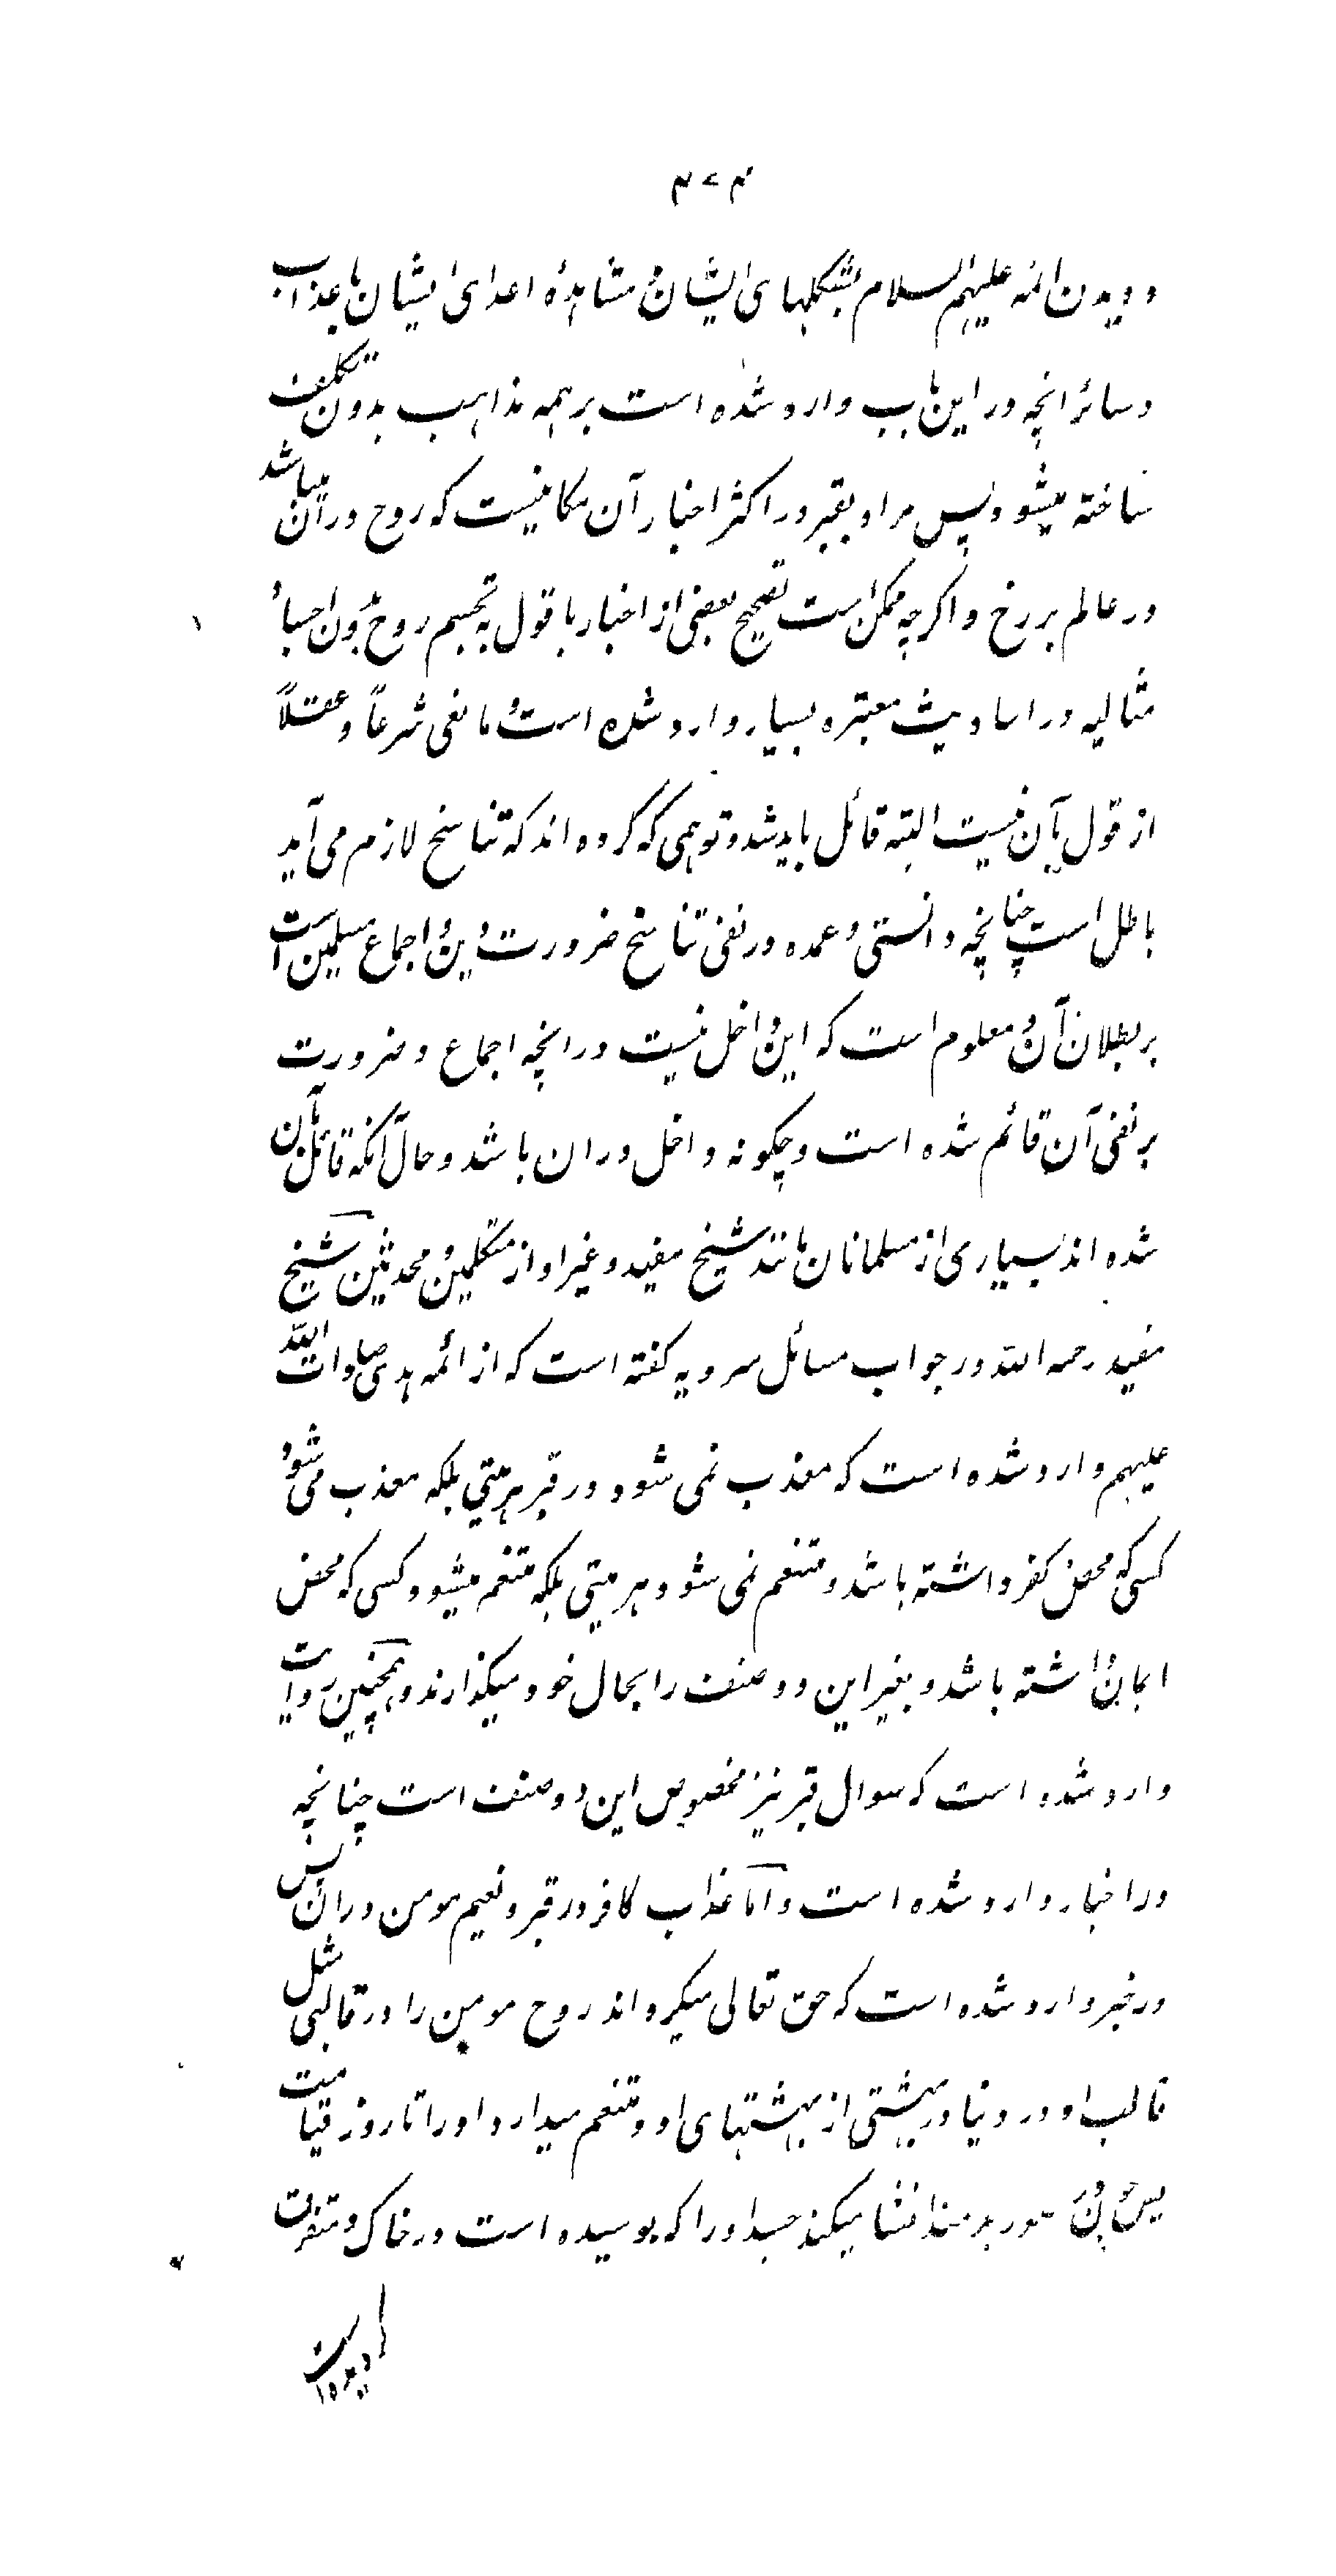 ۴۷۴
و دیدن ائمه علیهم السلام بشکلهای ایشان و مشاهدهٔ اعدای ایشان با عذاب
و سائر انچه در این باب وارد شده است بر همه مذاهب بدون تکلف
ساخته میشود پس مراد بقبر در اکثر اخبار آن مکانیست که روح در آن میباشد
در عالم برزخ و اگرچه ممکن است تصحیح بعضی از اخبار با قول به تجسم روح بدون اجساد
مثالیه در احادیث معتبره بسیار وارد شده است و مانعی شرعاً و عقلاً
از قول بآن نیست البته قائل باید شد و توهمی که کرده اند که تناسخ لازم می آید
باطل است چنانچه دانستی و عمده در نفی تناسخ ضرورت دین و اجماع مسلمین است
بر بطلان آن و معلوم است که این داخل نیست در انچه اجماع و ضرورت
بر نفی آن قائم شده است و چگونه داخل در ان باشد و حال آنکه قائل بآن
شده اند بسیاری از مسلمانان مانند شیخ مفید و غیر او از متکلمین و محدثین شیخ
مفید رحمه الله در جواب مسائل سرویه گفته است که از ائمه هدی صلوات الله
علیهم وارد شده است که معذب نمی شود در قبر هر میتی بلکه معذب می شود
کسی که محض کفر داشته باشد و متنعم نمی شود هر میتی بلکه متنعم میشود کسی که محض
ایمان داشته باشد و بغیر این دو صنف را بحال خود میگذارند و همچنین روایت
وارد شده است که سوال قبر نیز مخصوص این دو صنف است چنانچه
در اخبار وارد شده است و اما عذاب کافر در قبر و نعیم مومن در ان پس
در خبر وارد شده است که حق تعالی میگرداند روح مومن را در قالبی مثل
قالب او در دنیا در بهشتی از بهشتهای او و متنعم میدارد او را تا روز قیامت
پس چون صور بدمند انشا میکند جسد او را که بوسیده است در خاک و متفرق